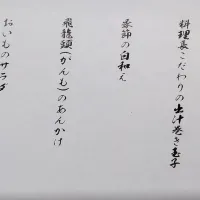 料理長こだわりの出汁巻き玉子
季節の白和え
飛龍頭(がんも)のあんかけ
おいものサラダ